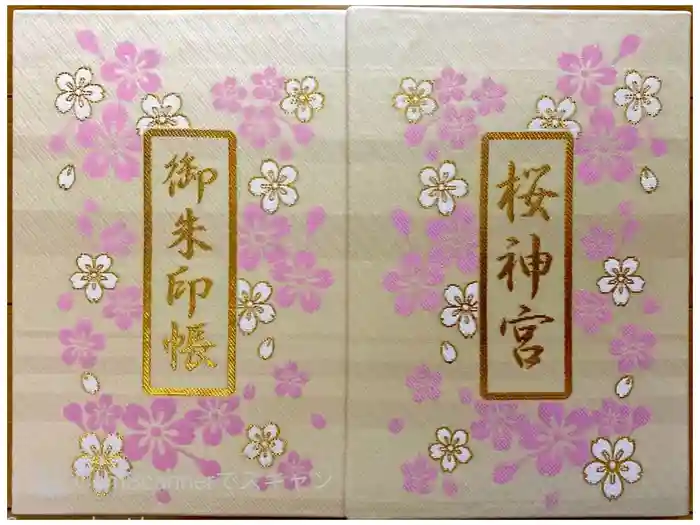 御朱印帳
桜神宮
Scannerでスキャン